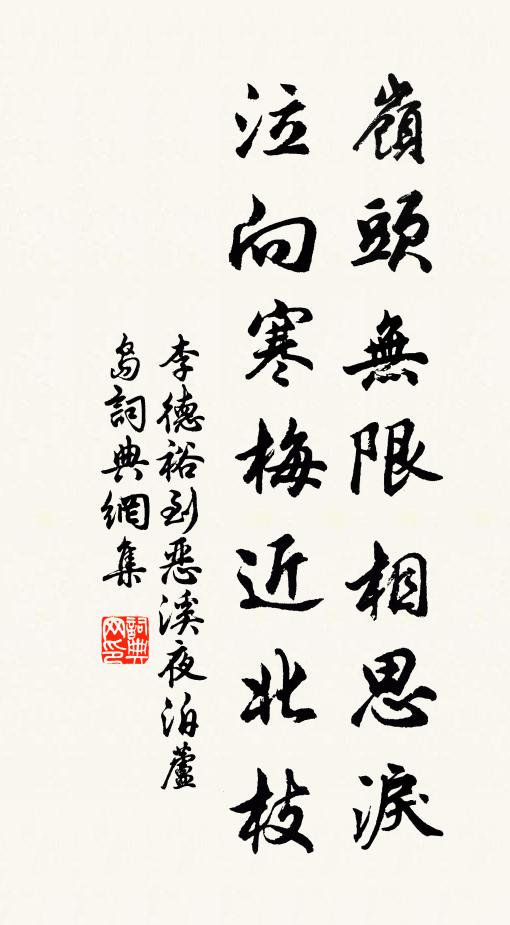 嶺頭無限相思淚
泣向寒梅近北枝
李德裕到惡溪夜泊蘆
島詞典網集
詞典網印